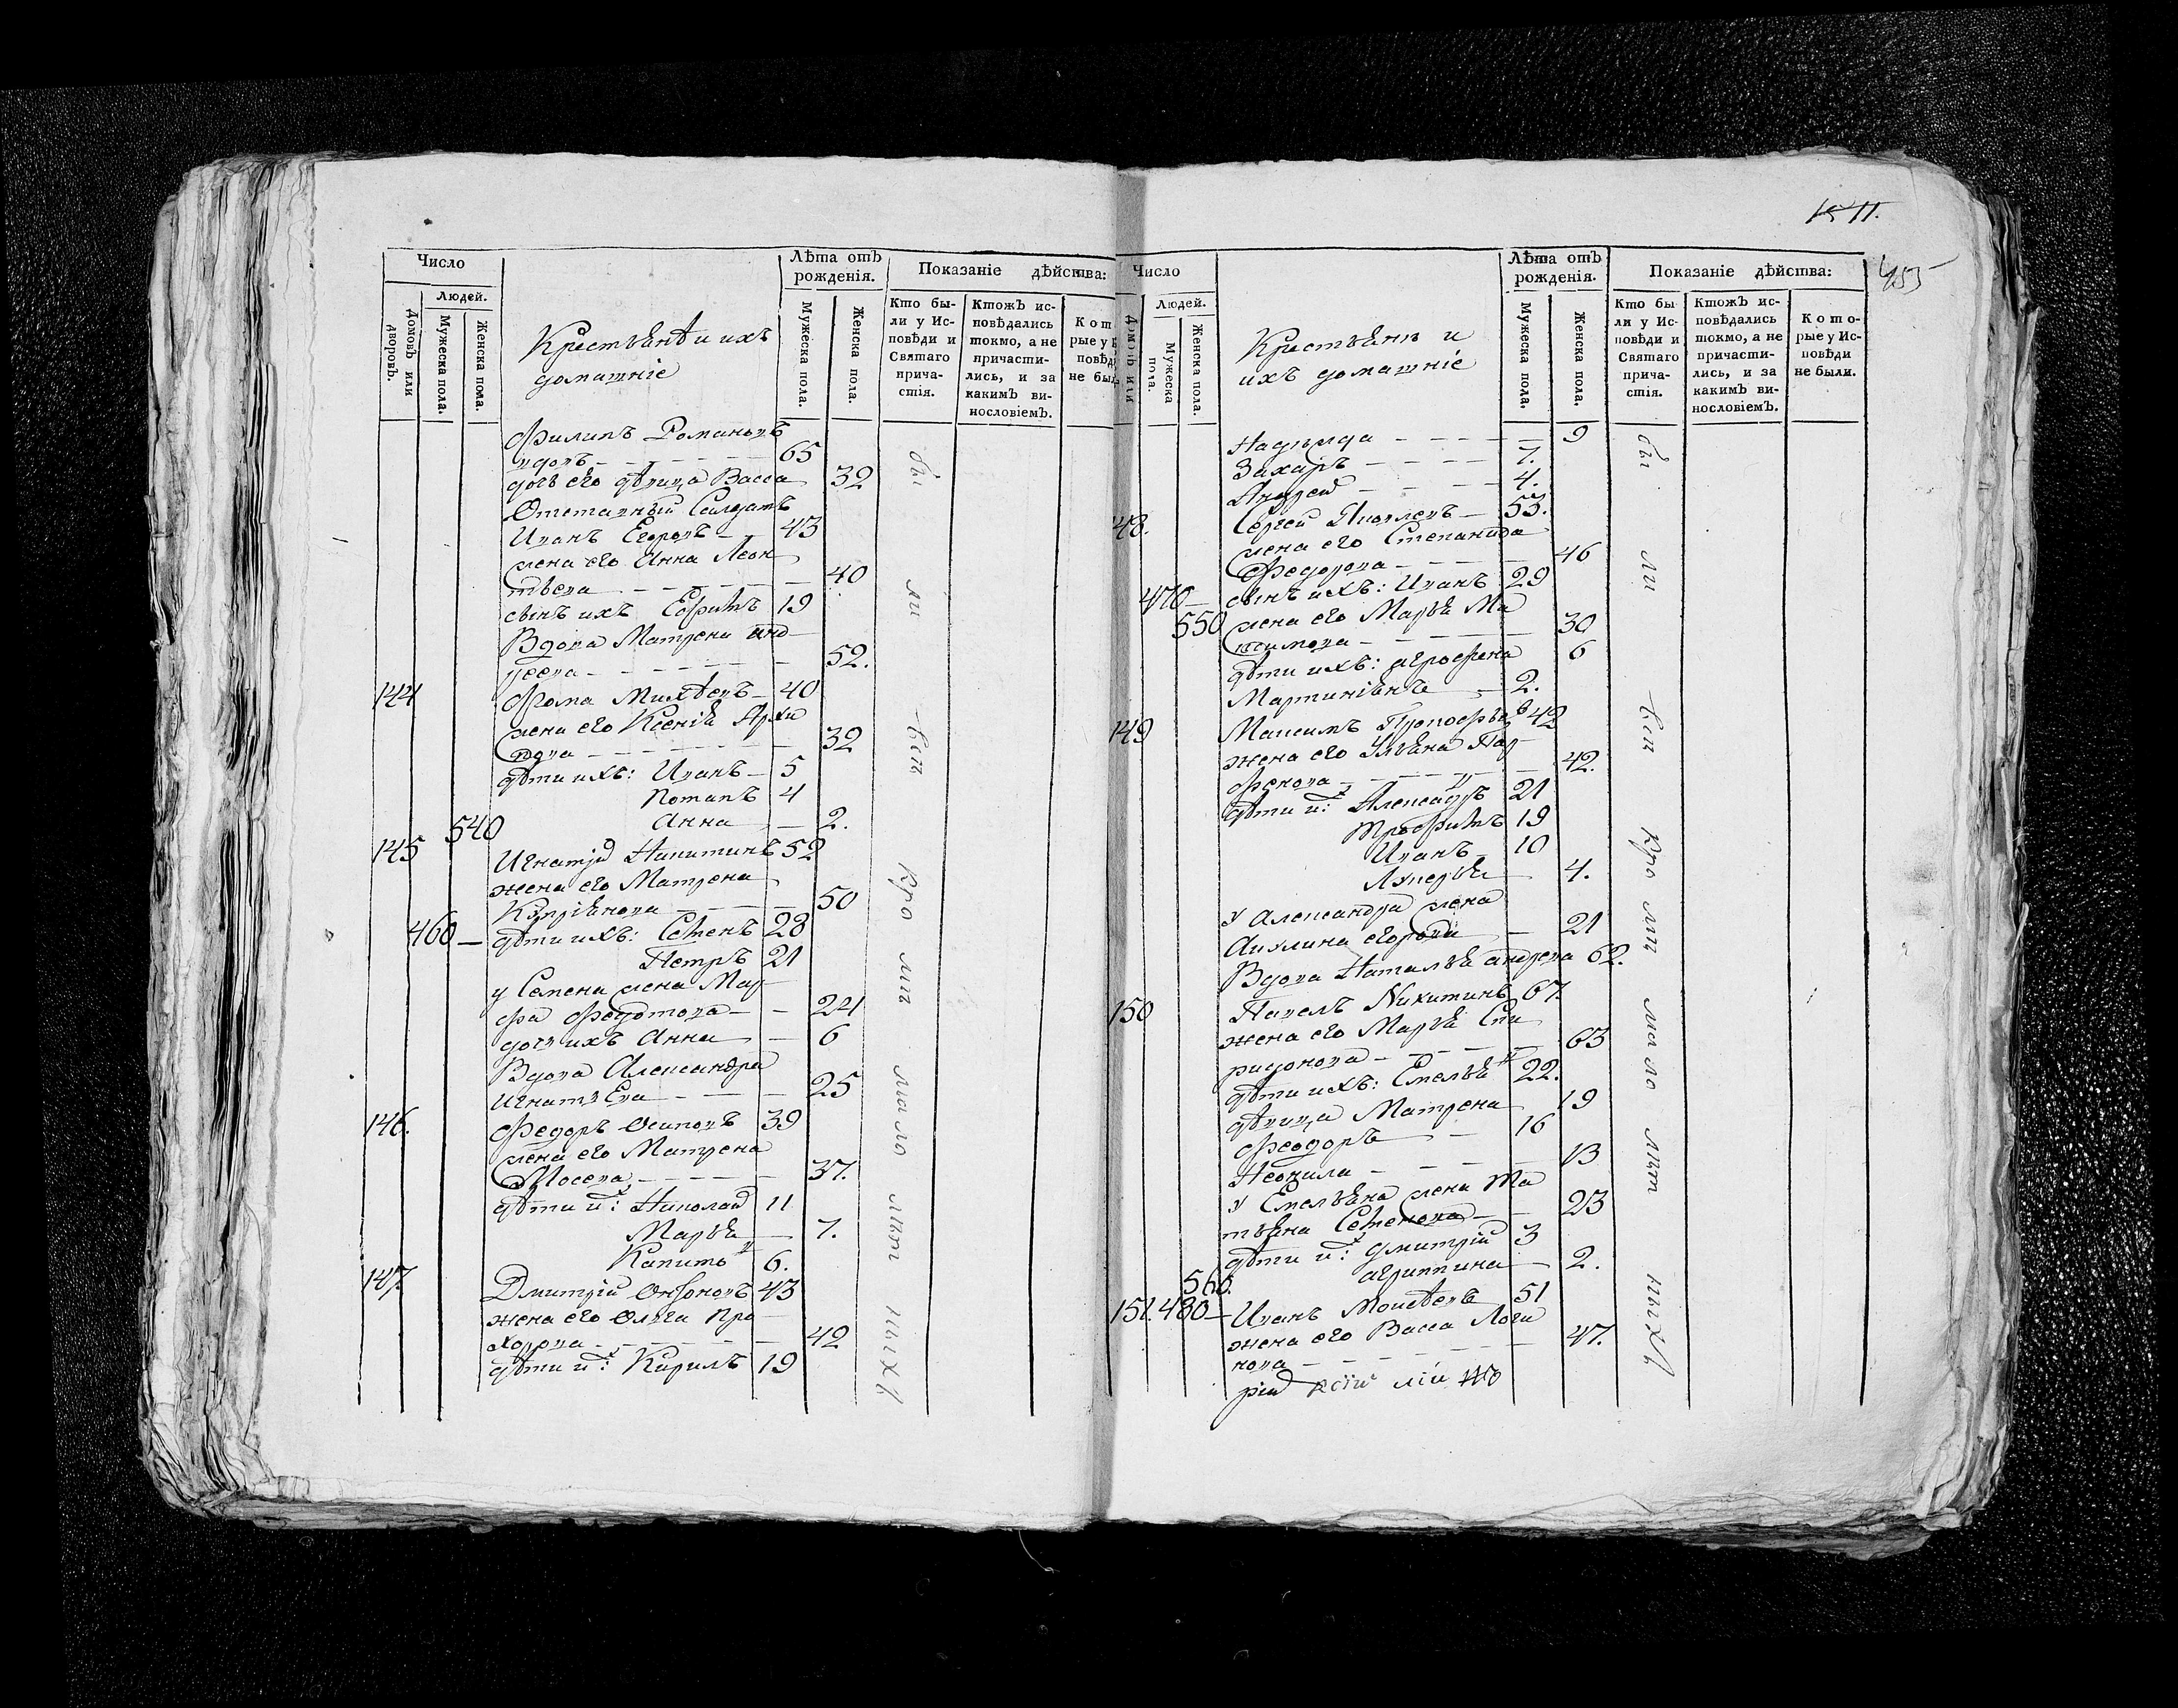 1511.
455
Число
Людей.
Домовъ или дворовъ.
Мужеска пола.
Женска пола.
Крестьянѣ и ихъ
домашніе
Лѣта отъ
рожденія.
Мужеска пола.
Женска пола.
Показаніе дѣйства:
Кто бы-
ли у Ис-
повѣди и
Святаго
прича-
стія.
Ктожъ ис-
повѣдались
токмо, а не
причасти-
лись, и за
какимъ ви-
нословіемъ.
Кот
рые у
повѣд
не был
Филипъ Романовъ
вдовъ 65
дочь его дѣвица Васса 32
Отставный Салдатъ
Иванъ Егоровъ 43
жена его Анна Леон
тьева 40
сынъ ихъ Ефимъ 19
Вдова Матрена анд
реева 52.
144 Фома Михѣевъ 40
жена его Ксенія Архи
пова 32
дѣти ихъ: Иванъ 5
Потапъ 4
540 Анна 2.
145 Игнатій Никитинъ 52
жена его Матрена
Купріянова 50
460 дѣти ихъ: Семенъ 28
Петръ 21
у Семена жена Мар
фа Федотова 24
дочь ихъ Анна 6
Вдова Александра
Игнатьева 25
146. Федоръ Осиповъ 39
жена его Матрена
Мосева 37.
дѣти их: Николай 11
Марья 7.
Капитон 6.
147. Дмитрій 43
жена его Ольга Про
хорова 42
дѣти их: Кирилъ 19
бы ли вси Кро мѣ мало лѣт ныхъ
Число
Людей.
Домовъ или
Мужеска пола.
Женска пола.
Крестьянѣ и
ихъ домашніе
Лѣта отъ
рожденія.
Мужеска пола.
Женска пола.
Показаніе дѣйства:
Кто бы
ли у Ис-
повѣди и
Святаго
прича-
стія.
Ктожъ ис-
повѣдались
токмо, а не
причасти-
лись, и за
какимъ ви-
нословіемъ.
Кото-
рые у Ис-
повѣди
не были.
Надежда 9
Захаръ 7.
Андрей 4.
48. Сергей Яковлевъ 53.
жена его Степанида
Федорова 46
470 сынъ ихъ: Иванъ 29
550 жена его Марья Ма
ксимова 30
дѣти ихъ: агрофена 6
Мартиніянъ 2.
149 Максимъ Прокофьевъ 42
жена его Ульяна Пар
фенова 42.
дѣти их: Александръ 21
Трофимъ 19
Иванъ 10
Лукерья 4.
у Александра жена
Акулина егорова 21
Вдова Наталья андреева 62.
150 Павелъ Никитинъ 67.
жена его Марья Спи
ридонова 63
дѣти ихъ: Емельян 22.
дѣвица Матрена 19
Феодоръ 16
Неонила 13
у Емельяна жена Та
тьяна Семенова 23
дѣти их: Дмитрій 3
560. агриппина 2.
151. 480 Иванъ Моисѣевъ 51
жена его Васса Логи
нова 47.
бы ли вси Кро мѣ мало лѣт ныхъ